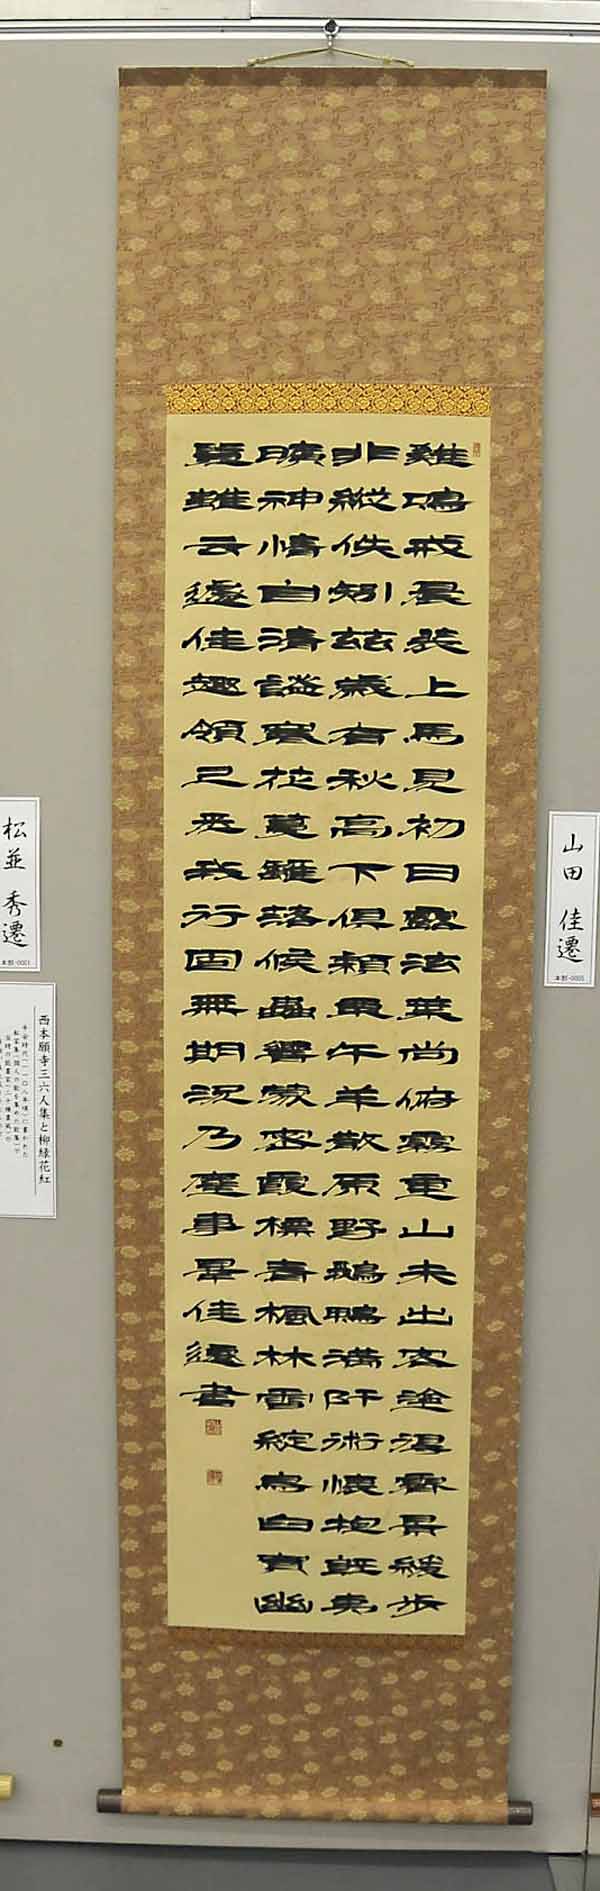 山田 佳遷
本部-0005
雞鳴戒晨裝上馬見初日露泫葉尚俯霧重山未出客塗得霽景緩步
非縱佚矧茲歲有秋高下俱穎栗午羊散原野鵝鴨滿阡術懷抱既夷
曠神情自清謐寒花蔓籬落候蟲響蒙密霞標青楓林雲綻烏臼實幽
覽雖云遽佳趣領已悉我行固無期況乃塵事畢佳遷書
松並 秀遷
本部-0001
西本願寺三六人集と柳緑花紅